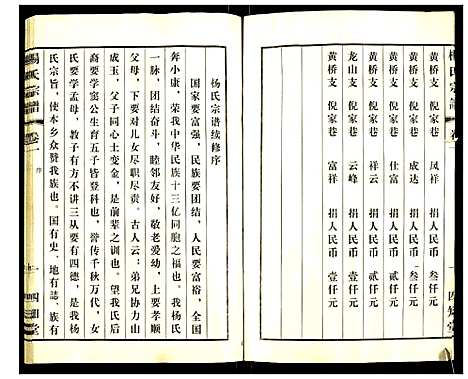 楊氏宗譜 卷
黄桥支 倪家巷 凤祥 捐人民币 叁仟元
黄桥支 倪家巷 成达 捐人民币 叁仟元
黄桥支 倪家巷 仕富 捐人民币 贰仟元
黄桥支 倪家巷 祥云 捐人民币 贰仟元
龙山支 倪家巷 云峰 捐人民币 壹仟元
黄桥支 倪家巷 富祥 捐人民币 壹仟元
四知堂
杨氏宗谱续修序
国家要富强，民族要团结，人民要富裕，全国
奔小康，荣我中华民族十三亿同胞之福也。我杨氏
一脉，团结奋斗，睦邻友好，敬老爱幼，上要孝顺
父母，下要对儿女尽职尽责。古人云：弟兄协力山
成玉，父子同心土变金，是前辈之训也。望我氏后
裔要学窦公生育五子皆登科也，誉传千秋万代，女
氏要学孟母，教子有方不讲三从要有四德，是我杨
氏宗旨，使本乡众赞我族也。国有史、地有誌、族有
楊氏宗譜 卷一
序
一
四知堂